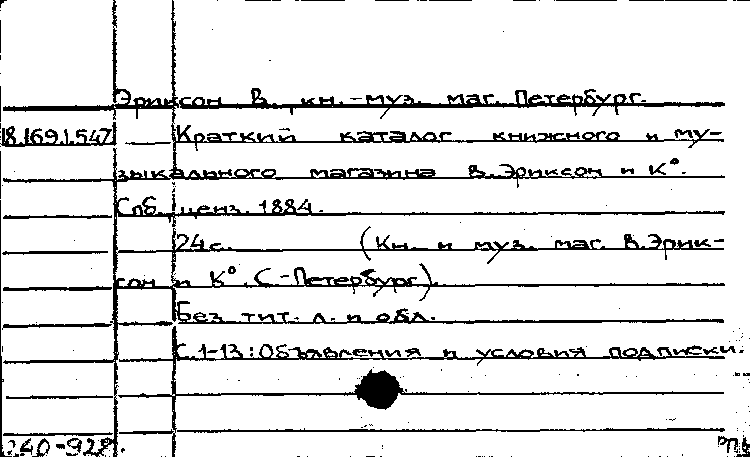 Эриксон В., кн.-муз. маг. Петербург.
18.169.1.547 Краткий каталог книжного и му-
зыкального магазина В. Эриксон и К°.
Спб., ценз. 1884.
24с. (Кн. и муз. маг. В. Эрик-
сон и К°. С-Петербург).
Без тит. л. и обл.
С. 1-13: Объявления и условия подписки.